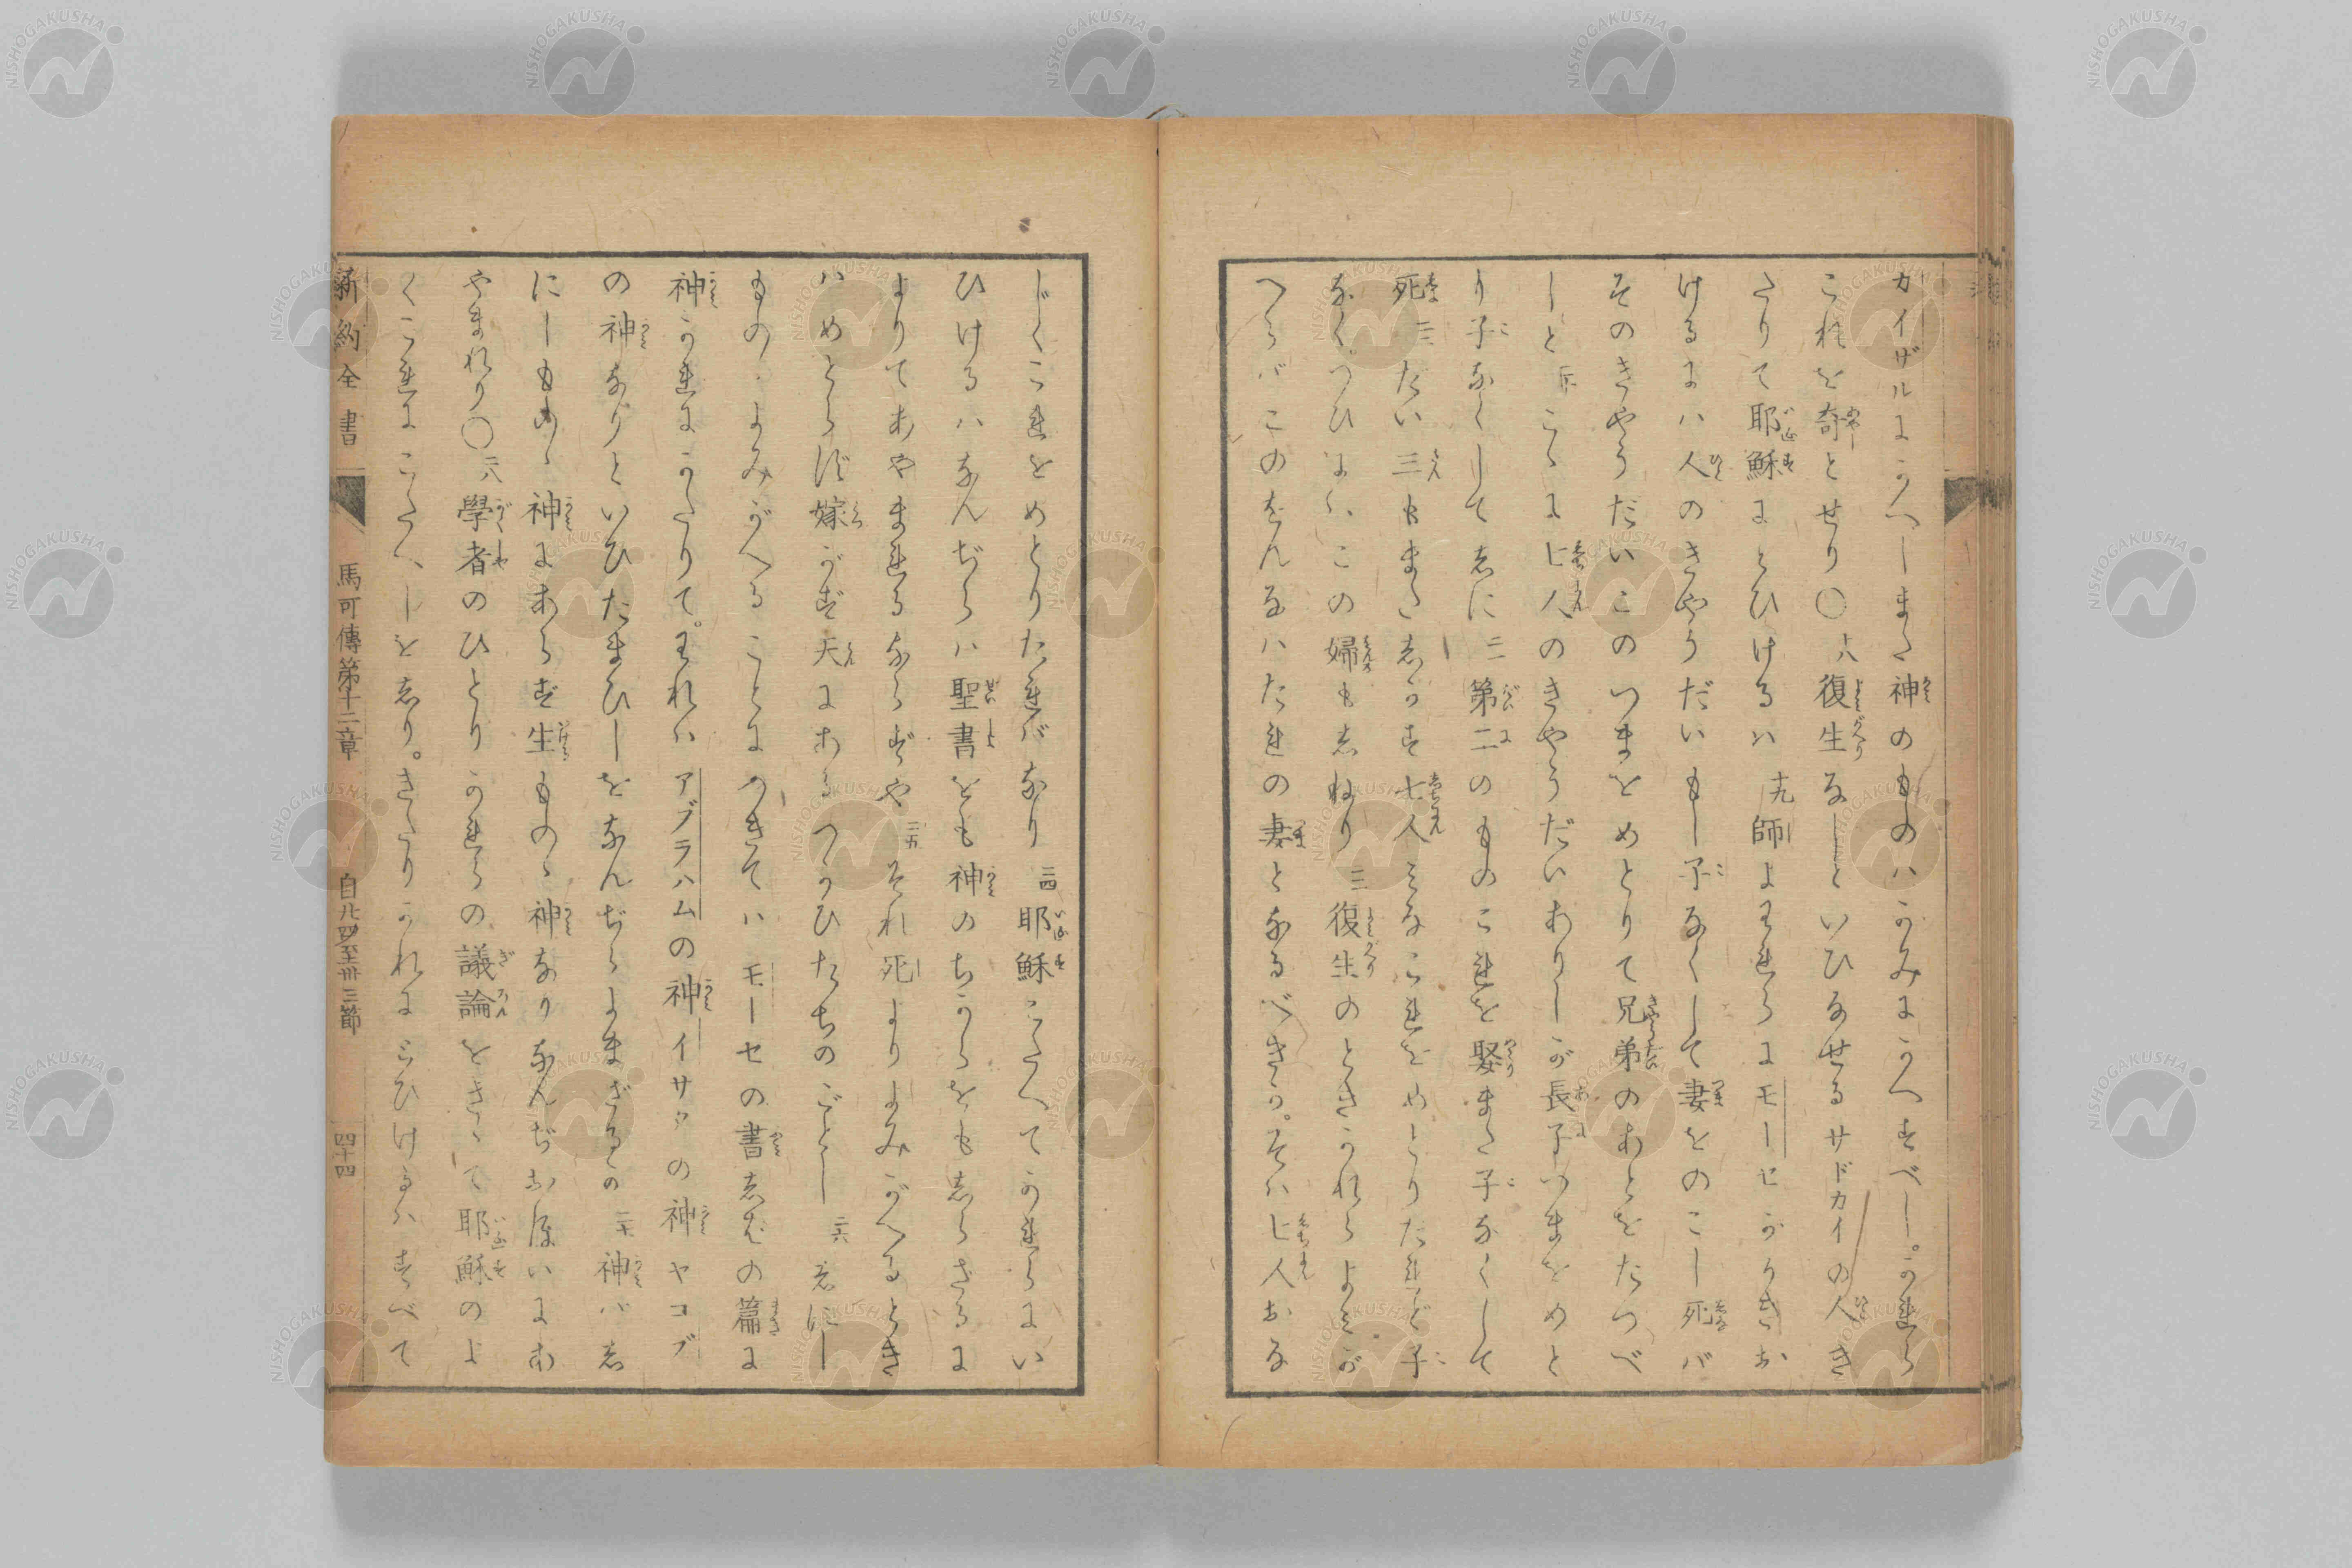 カイザルにかへしまた神のものハかみにかへすべし。かれら
これを奇とせり〇十八復生なしといひなせるサドカイの人き
たりて耶穌にとひけるハ十九師よわれらにモーセがかきお
けるにハ人のきやうだいもし子なくして妻をのこし死バ
そのきやうだいこのつまをめとりて兄弟のあとをたつべ
しと二十こゝに七人のきやうだいありしが長子つまをめと
り子なくして志に二一第二のものこれを娶また子なくして
死二二だい三もまた志かす七人みなこれをめとりたれど子
なくつひにハこの婦も志ねり二三復生のときかれらよみが
へらバこのをんなハたれの妻となるべきか。そハ七人おな
じくこれをめとりたれバなり二四耶穌こたへてかれらにい
ひけるハなんぢらハ聖書をも神のちからをも志らざるに
よりてあやまれるならずや二五それ死よりよみがへるとき
ハめとらず嫁がず天にあるつかひたちのごとし二六志にし
ものゝよみがへることにつきてハモーセの書志ばの篇に
神かれにかたりて。われハアブラハムの神イサクの神ヤコブ
の神なりといひたまひしをなんぢらよまざるか二七神ハ志
にしものゝ神にあらず生ものゝ神なりなんぢらおほいにあ
やまれり〇二八學者のひとりかれらの議論をきゝて耶穌のよ
くこれにこたへしを志り。きたりかれにとひけるハすべて
新約全書 馬可傳第十二章 自廿四至卅三節 四十四